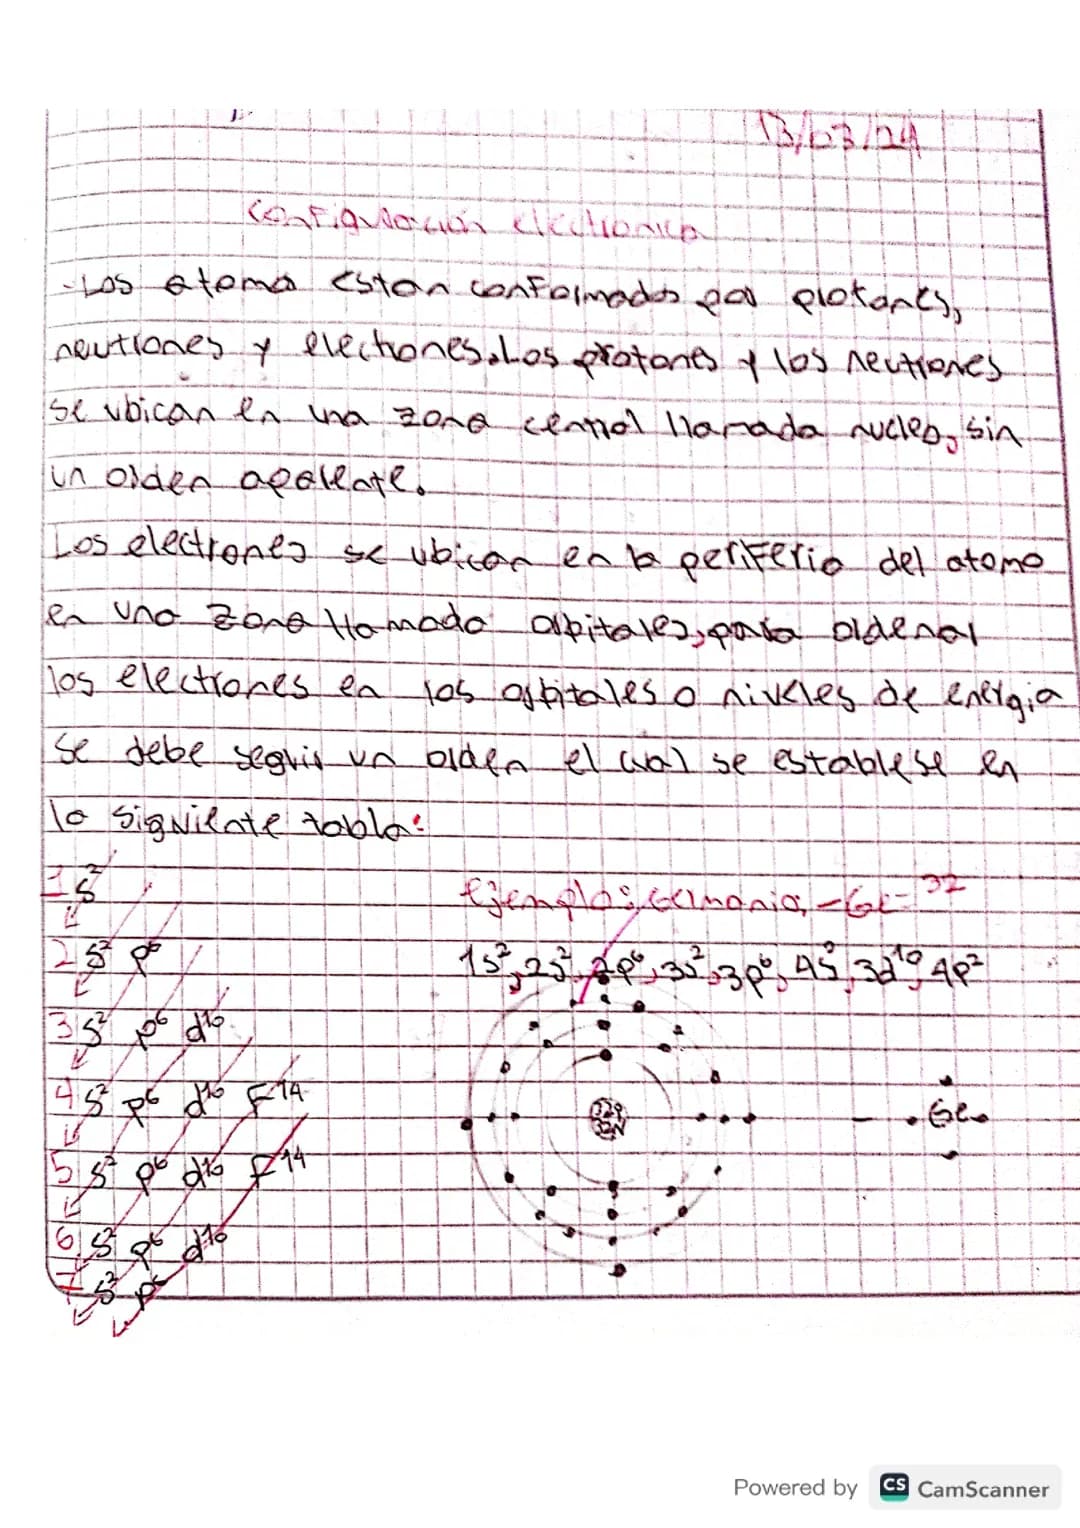 13/03/24
Configuración electronica
-Los atomo estan conformados por protones,
neutrones y electrones. Los protones y los neutrones
se ubican en una zona central llamada nucleo, sin
un orden aparente.
Los electrones se ubican en la periferia del atomo
en una zona llamada orbitales, para ordenar
los electrones en los orbitales o niveles de energia
se debe seguir un orden el cual se establese en
la siguiente tabla:
1s²
Ejemplo: Germanio, -Ge= 32
2s² p⁶
1s², 2s², 2p⁶, 3s², 3p⁶, 4s², 3d¹⁰, 4p²
3s² p⁶ d¹⁰
4s² p⁶ d¹⁰ F¹⁴
32P
32N
Ge
5s² p⁶ d¹⁰ F¹⁴
6s² p⁶ d¹⁰
7s² p⁶
Powered by CS CamScanner